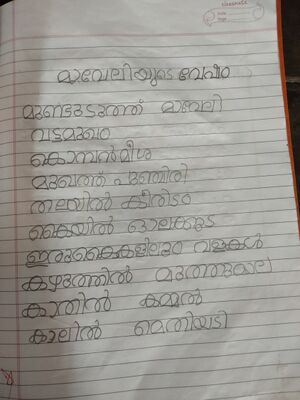 classmate
Date
Page
മാവേലിയുടെ വേഷം
മുണ്ടുടുത്ത് മാവേലി
വട്ടമുഖം
കൊമ്പൻമീശ
മുഖത്ത് പുഞ്ചിരി
തലയിൽ കിരീടം
കൈയിൽ ഓലക്കുട
ഇരുകൈകളിലും വളകൾ
കഴുത്തിൽ മുത്തുമാല
കാതിൽ കമ്മൽ
കാലിൽ മെതിയടി